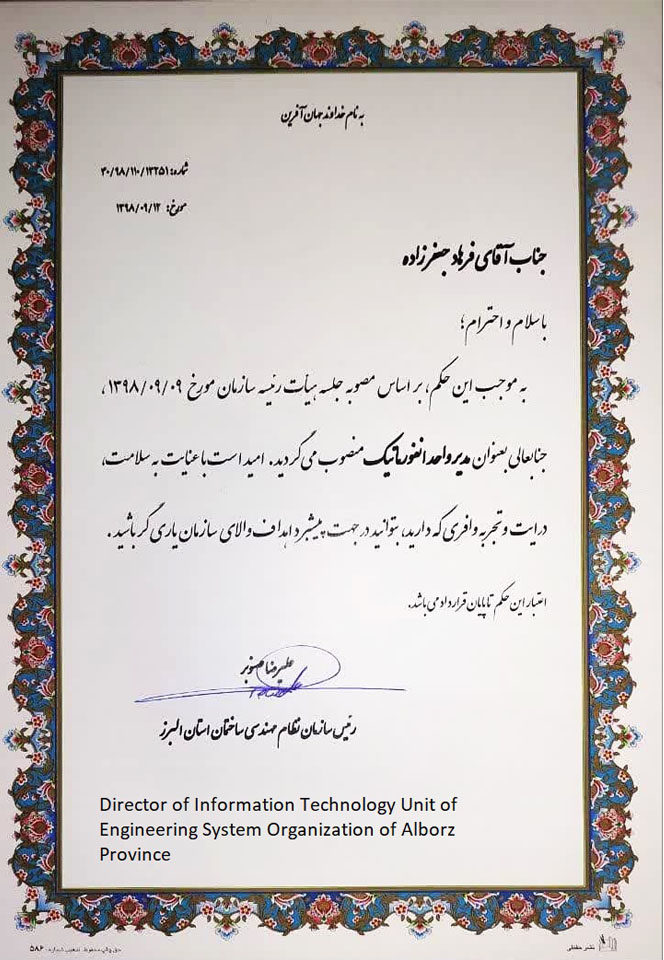 به نام خداوند جهان آفرین
شماره: ۳۰/۹۸/۱۱۰/۱۳۲۵۱
مورخ: ۱۳۹۸/۰۹/۱۲
جناب آقای فرهاد جعفرزاده
با سلام و احترام؛
به موجب این حکم، بر اساس مصوبه جلسه هیأت رئیسه سازمان مورخ ۱۳۹۸/۰۹/۰۹،
جنابعالی بعنوان مدیر واحد انفورماتیک منصوب می گردید. امید است با عنایت به سلامت،
درایت و تجربه وافری که دارید، بتوانید در جهت پیشبرد اهداف والای سازمان یاری گر باشید.
اعتبار این حکم تا پایان قرارداد می باشد.
علیرضا صنوبر
رئیس سازمان نظام مهندسی ساختمان استان البرز
Director of Information Technology Unit of
Engineering System Organization of Alborz
Province
نشر حقیقی
حق چاپ محفوظ. تذهیب شماره: ۵۸۶